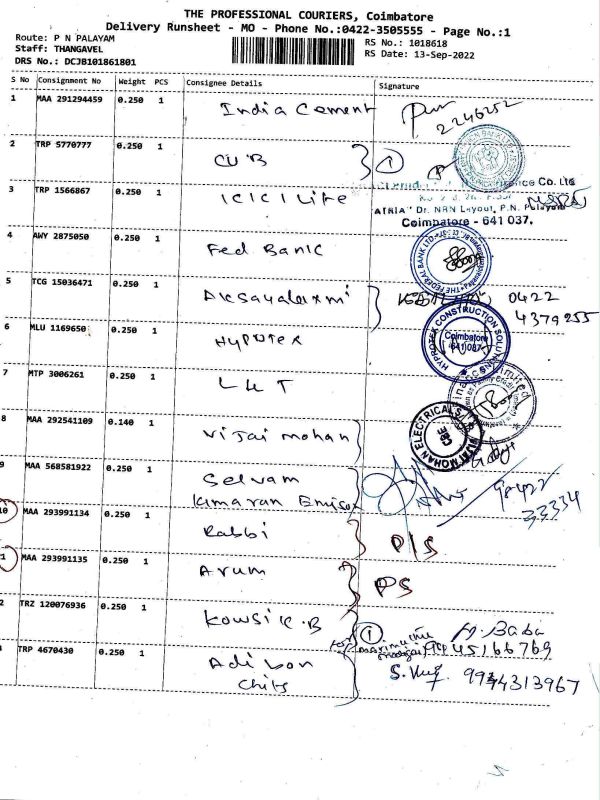 THE PROFESSIONAL COURIERS, Coimbatore
Delivery Runsheet - MO - Phone No.:0422-3505555 - Page No.:1
Route: P N PALAYAM
Staff: THANGAVEL
DRS No.: DCJB101861801
RS No.: 1018618
RS Date: 13-Sep-2022
S No Consignment No Weight PCS Consignee Details Signature
1 MAA 291294459 0.250 1 India Cement
2246252
2 TRP 5770777 0.250 1 CUB 1
3 TRP 1566867 0.250 1 ICICI Life
Co. Ltd
"ATRIA" Dr. NRN Layout, P.N. Palayam
Coimbatore - 641 037.
4 AWY 2875050 0.250 1 Fed Bank
THE FEDERAL BANK LTD.
5 TCG 15036471 0.250 1 Aksayalaxmi
0422
4379255
6 MLU 1169650 0.250 1 Hyprotex
HYPROTEK CONSTRUCTION SOLUTIONS
Coimbatore
641 087
7 MTP 3006261 0.250 1 L & T
8 MAA 292541109 0.140 1 Vijai mohan
VIJAY MOHAN ELECTRICALS
CBE
9 MAA 568581922 0.250 1 Selvam
Kumaran
33334
10 MAA 293991134 0.250 1 Rabbi P/S
1 MAA 293991135 0.250 1 Arum PS
2 TRZ 120076936 0.250 1 Kowsik.B 1 M. Baba
9845166769
TRP 4670430 0.250 1 Adi bon
Chits
9944313967